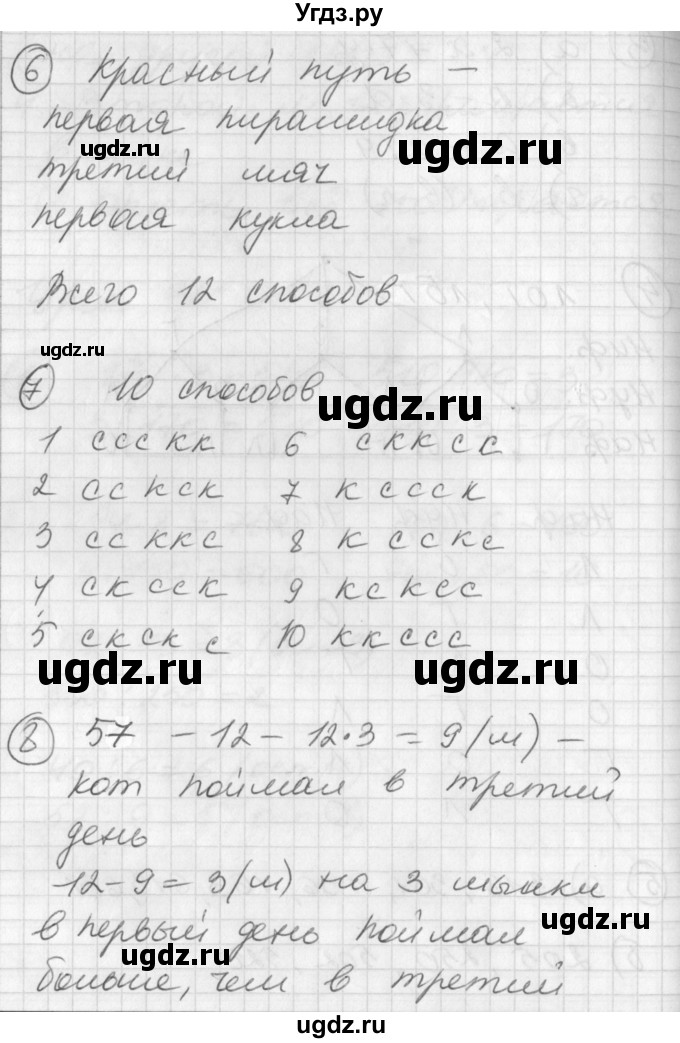 Угдз.ру
6 Красный путь —
первая пирамидка
ugdz.ru ugdz.ru
третий мяч
первая кукла
Всего 12 способов
ugdz.ru
7 10 способов ugdz.ru
1 с с с к к 6 с к к с с
2 с с к с к 7 к с с с к
3 с с к к с 8 к с с к с
4 с к с с к 9 к с к с с
5 с к с к с 10 к к с с с
ugdz.ru ugdz.ru
8 57 - 12 - 12·3 = 9 (м) —
кот поймал в третий
день
12-9 = 3 (м) на 3 мышки
ugdz.ru
в первый день поймал
ugdz.ru
больше, чем в третий
ugdz.ru